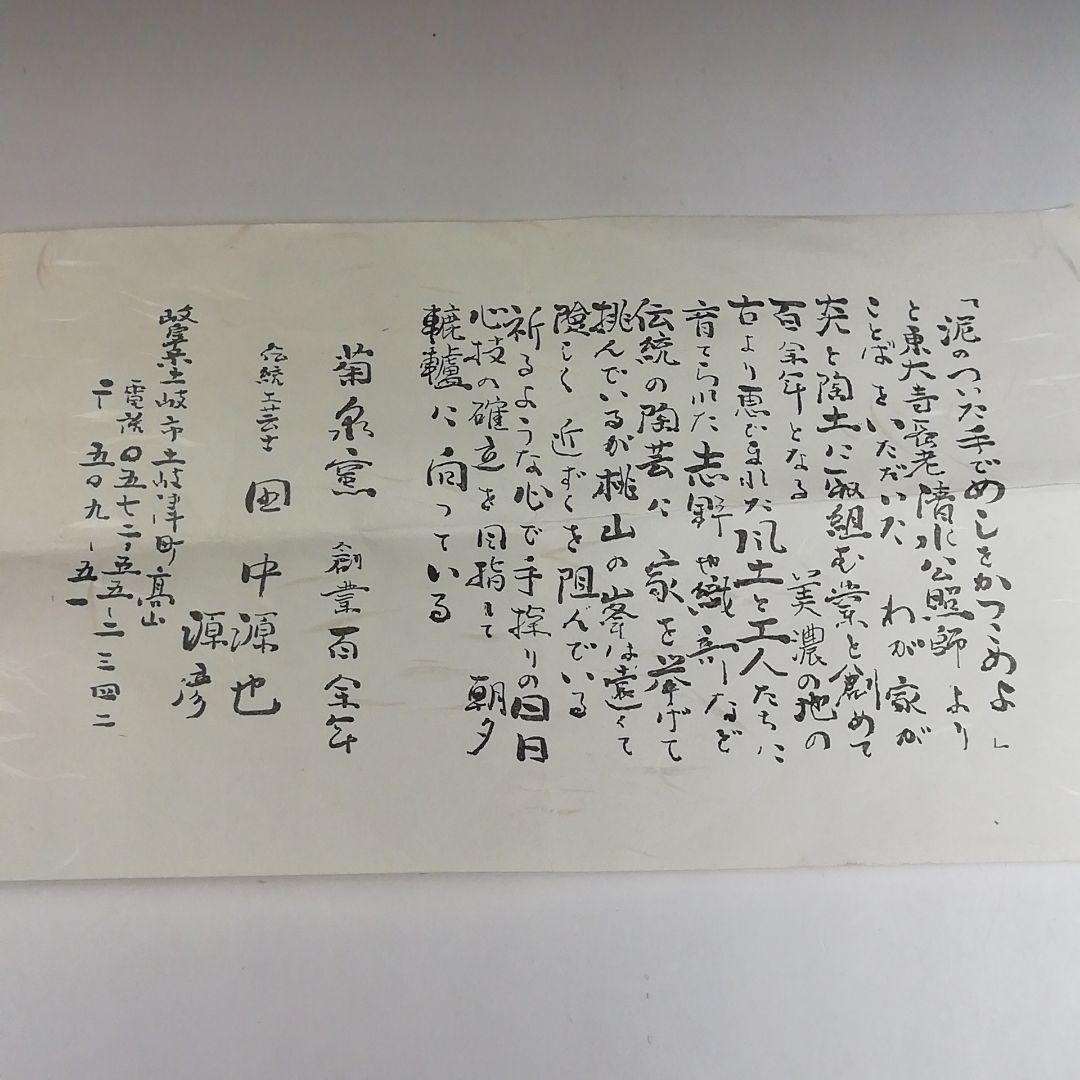 「泥のついた手でめしをかつこめよ」
と東大寺長老清水公照師より
ことばをいただいた わが家が
炎と陶土に取組む業と創めて
百余年となる 美濃の地の
古より恵まれた風土と工人たちに
育てられた志野や織部など
伝統の陶芸に家を挙げて
挑んでいるが桃山の峯は遠くて
険しく近ずくを阻んでいる
祈るような心で手探りの日日
心技の確立を目指して朝夕
轆轤に向っている
菊泉窯 創業百余年
伝統工芸士 田中源也
源彦
岐阜県土岐市土岐津町高山
電話〇五七二-五五-二三四二
〒 五〇九-五一